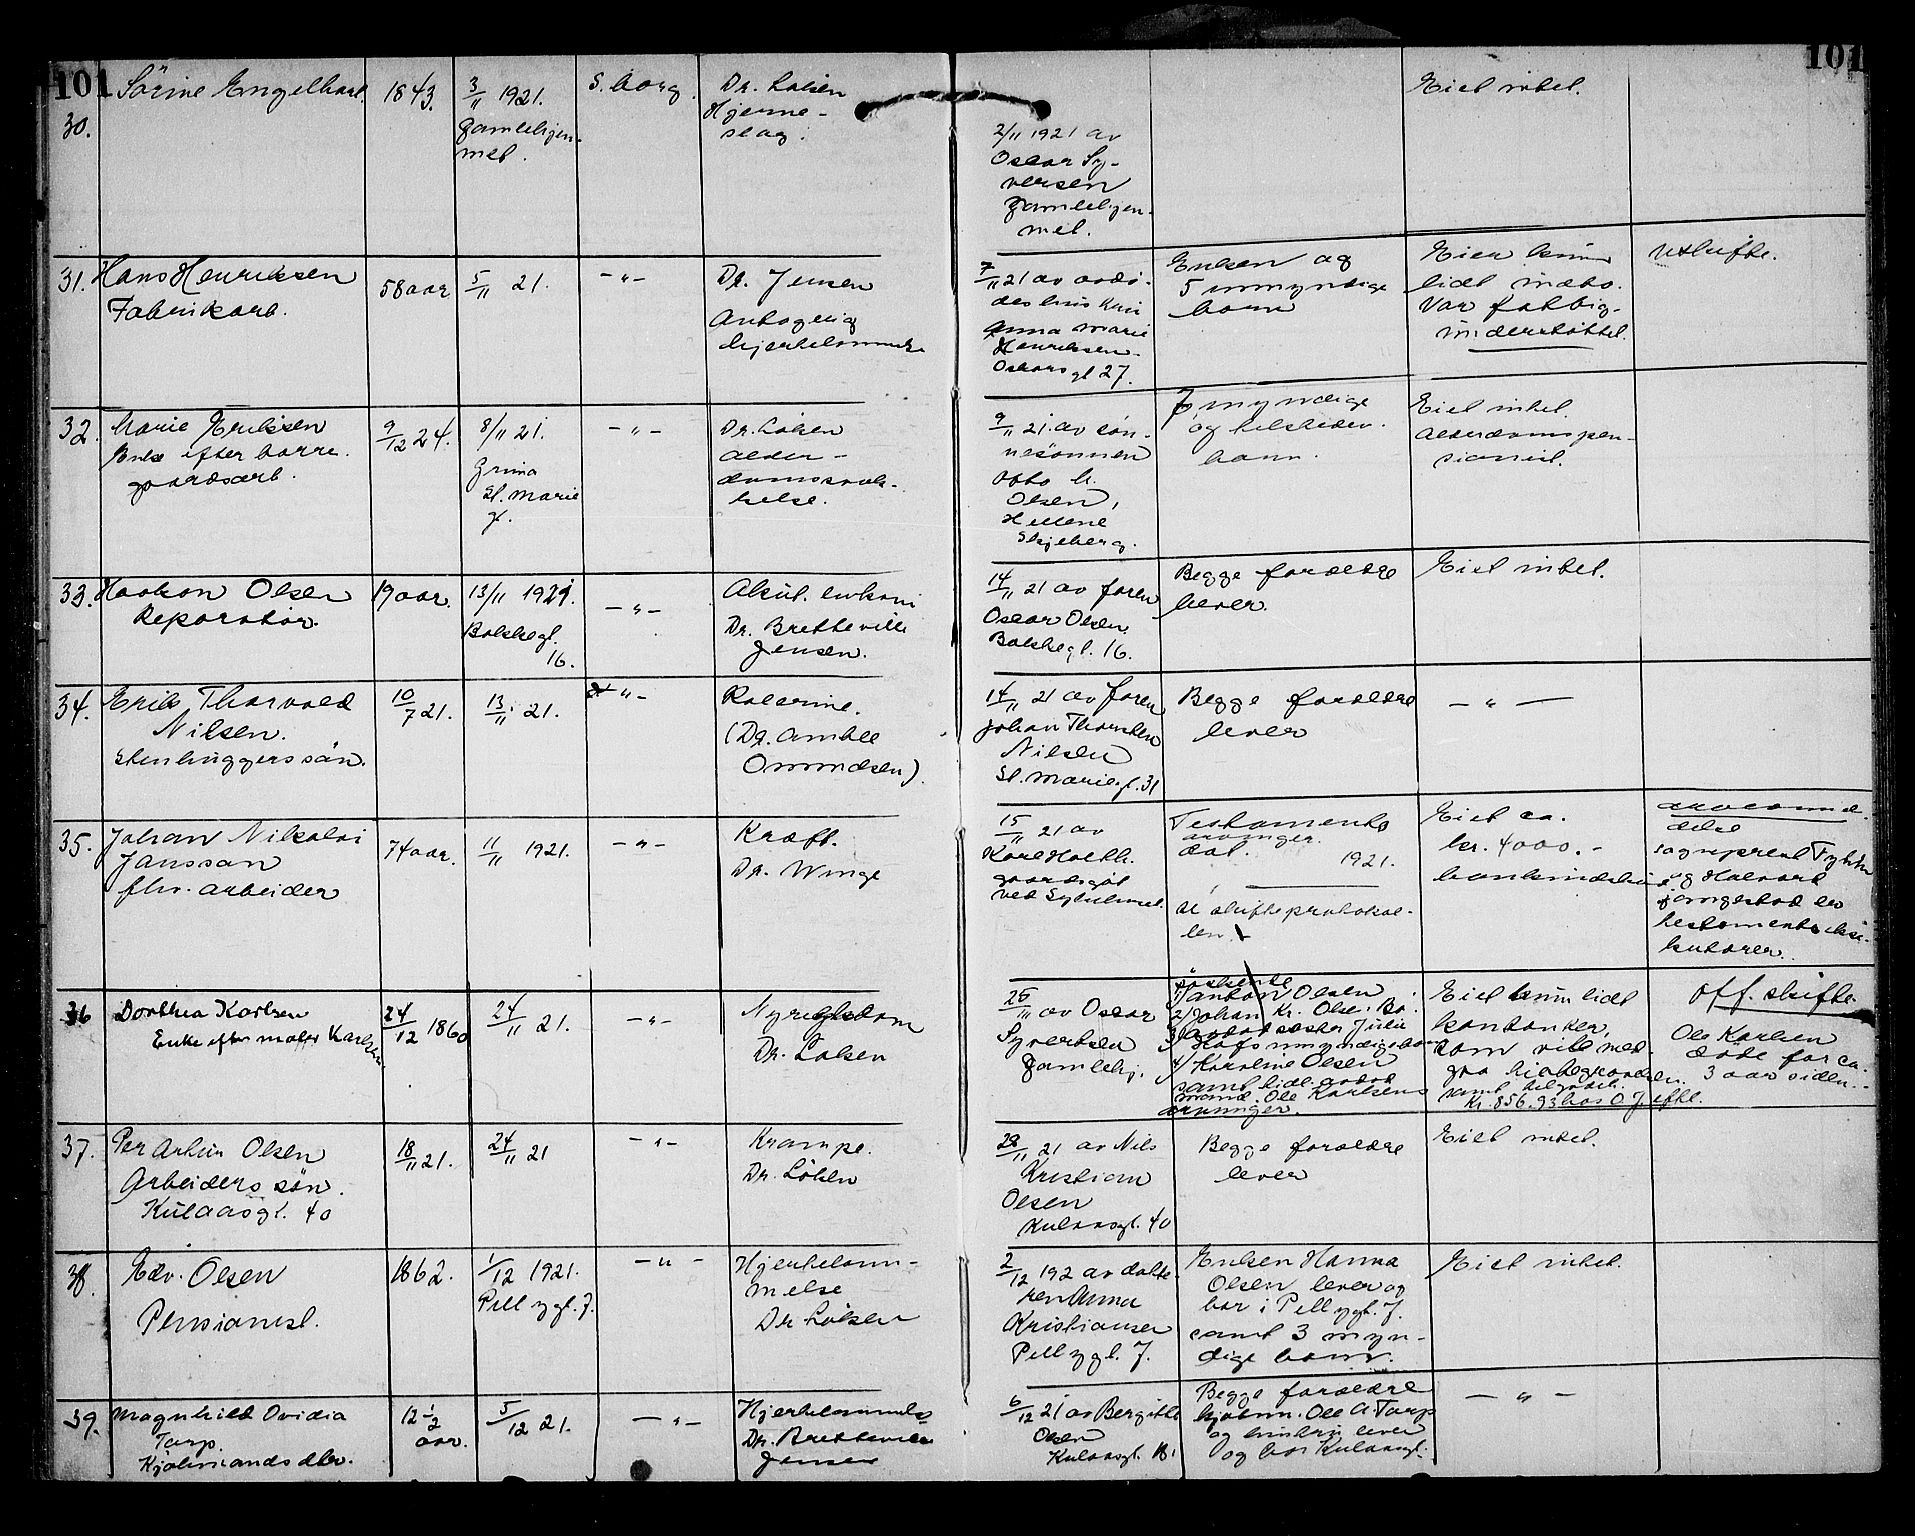 101
101
30.
Sörine Engelhart.
1843.
3/11 1921.
Gamlehjem-
met.
S.borg.
Dr. Löken
Hjerne-
slag.
2/11 1921 av
Oscar Sy-
versen
Gamlehjem-
met.
Eiet intet.
31.
Hans Henriksen
Fabrikarb.
58 aar
5/11 21.
-"-
Dr. Jensen
Antagelig
hjertelammelse
7/11 21 av avdö-
des hustru
Anna Marie
Henriksen
Oscarsgt 27.
Enken og
5 umyndige
barn
Eier kun
lidt indbo.
Var fattig-
understöttet.
Utskifte.
32.
Marie Eriksen
Enke efter borre-
gaardsarb.
9/12 24.
8/11 21.
Grina
St. Marie
g.
-"-
Dr. Löken
Alder-
domssvak-
helse.
9/11 21. av sön-
nesönnen
Otto H.
Olsen,
Skjeberg.
7 myndige
og tilstede
barn.
Eiet intet.
Alderdomspen-
sionist.
33.
Haakon Olsen
Reparatör.
19 aar.
13/11 1921.
Balskegt.
16.
-"-
Dr. Bretteville
Jensen.
14/11 21 av faren
Oscar Olsen.
Balskegt. 16.
Begge forældre
lever.
Eiet intet.
34.
Erik Thorvald
Nilsen.
Stenhuggerssön.
10/7 21.
13/11 21.
-"-
Kolerine.
(Dr. Amble
Ommundsen).
14/11 21 av faren
Johan Thorsten
Nilsen
St. Mariegt. 31
Begge forældre
lever
-"-
35.
Johan Nikolai
Janssan
fhv. arbeider
74 aar.
11/11 1921.
-"-
Kræft.
Dr. Winge
15/11 21 av
Karl Holth.
gaardsgut
ved Sykehuset.
Testaments
arvinger.
dat. 1921.
se skifteprotokol-
len.
Eiet ca.
kr. 4000.-
bankindskud
testamentseksi-
kutorer.
36
Dorthea Karlsen
Enke efter maler Karlsen
24/12 1860
24/11 21.
-"-
Nyresykdom
Dr. Löken
25/11 av Oscar
Syvertsen
Gamlehj.
söskende
1/ Anton Olsen
2/ Johan Kr. Olsen
3/ avdöd söster Julie
umyndige barn
4/ Karoline Olsen
samt tidl. avdöd
mand. Ole Karlsens
arvinger.
Eiet kun lidt
kontanter,
som vil med-
gaa til begravelsen.
samt tilgodeh.
Kr. 856.93 hos O. J. eftf.
Off. skifte
Ole Karlsen
döde for ca.
3 aar siden.-
37.
Per Artur Olsen
Arbeiders sön.
Kulaasgt. 40
18/11 21.
24/11 21
-"-
Krampe.
Dr. Löken
28/11 21 av Nils
Kristian
Olsen
Kulaasgt. 40
Begge forældre
lever
Eiet intet.
38.
Edv. Olsen
Pensionist.
1862.
1/12 1921.
Pellygt. 7.
-"-
Hjertelam-
melse
Dr Löken
2/12 192 av datte-
ren Anna
Kristiansen
Pellygt. 7.
Enken Hanna
Olsen lever og
bor i Pellygt. 7.
samt 3 myn-
dige barn.
Eiet intet.
39.
Magnhild Ovidia
Tarp.
Kjöbmandsdtr.
12 1/2
aar.
5/12 21.
-"-
Hjertelammelse
Dr. Bretteville
Jensen
6/12 21 av Bergitte
Olsen
Kulaasgt. 18.
Begge forældre
kjöbm. Ole A. Tarp
og hustru lever
og bor Kulaasgt.
-"-